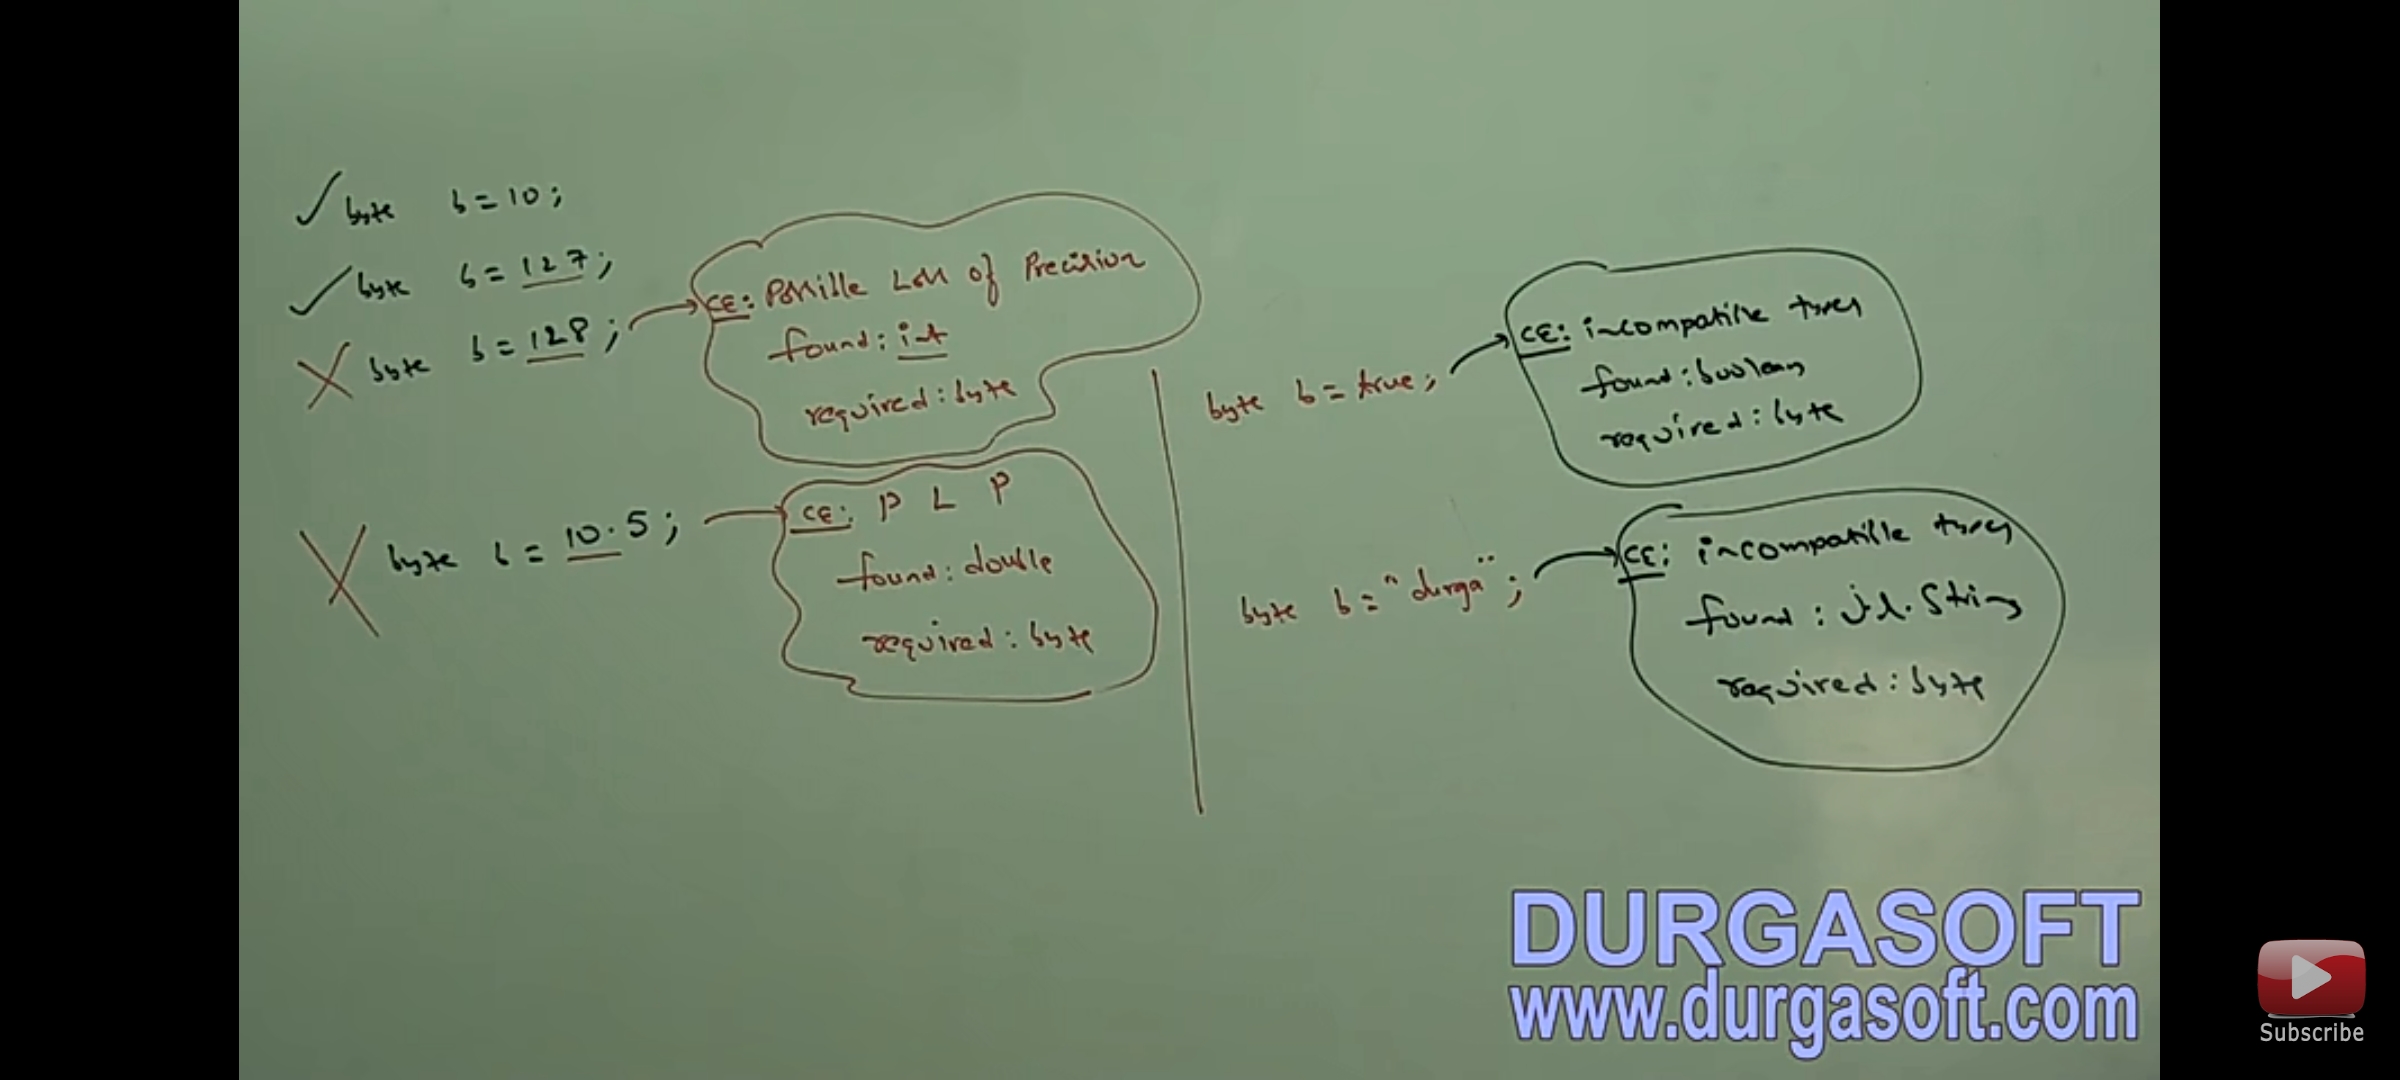 byte b = 10;
byte b = 127;
byte b = 128;
CE: Possible Loss of Precision
found: int
required: byte
byte b = 10.5;
CE: P L P
found: double
required: byte
byte b = true;
CE: incompatible types
found: boolean
required: byte
byte b = "durga";
CE: incompatible types
found: j.l.String
required: byte
DURGASOFT
www.durgasoft.com
Subscribe